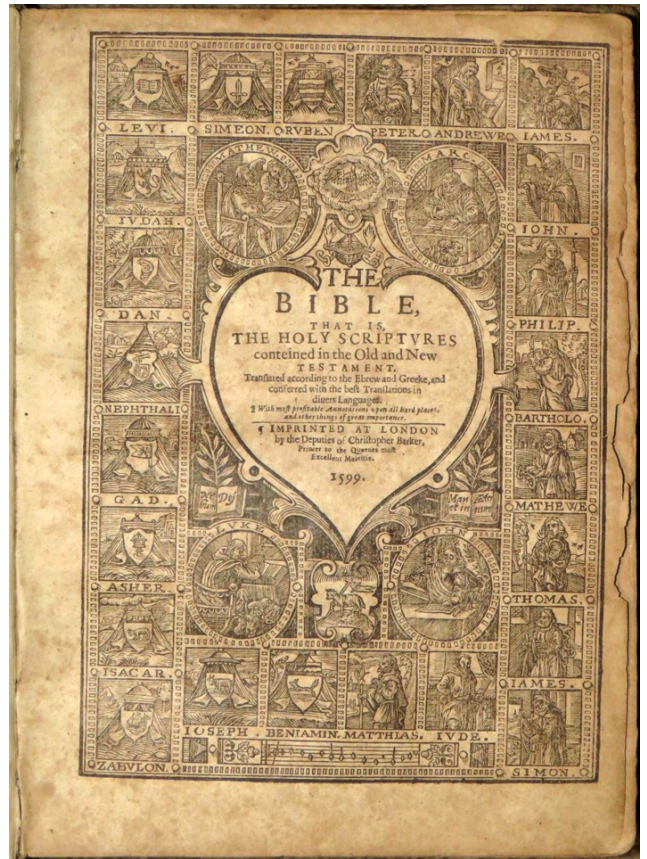 LEVI. SIMEON. RVBEN PETER ANDREWE IAMES.
MATHEW MARC
IVDAH. IOHN.
DAN. PHILIP.
NEPHTHALI BARTHOLO.
GAD. MATHEWE
ASHER. THOMAS.
ISACAR. IAMES.
ZABVLON. SIMON.
THE
BIBLE,
THAT IS,
THE HOLY SCRIPTVRES
conteined in the Old and New
TESTAMENT.
Translated according to the Ebrew and Greeke, and
conferred with the best Translations in
diuers Languages.
¶ With most profitable Annotations vpon all hard places,
and other things of great importance.
¶ IMPRINTED AT LONDON
by the Deputies of Christopher Barker,
Printer to the Queenes most
Excellent Maiestie.
1599.
LVKE IOHN
IOSEPH. BENIAMIN. MATTHIAS. IVDE.